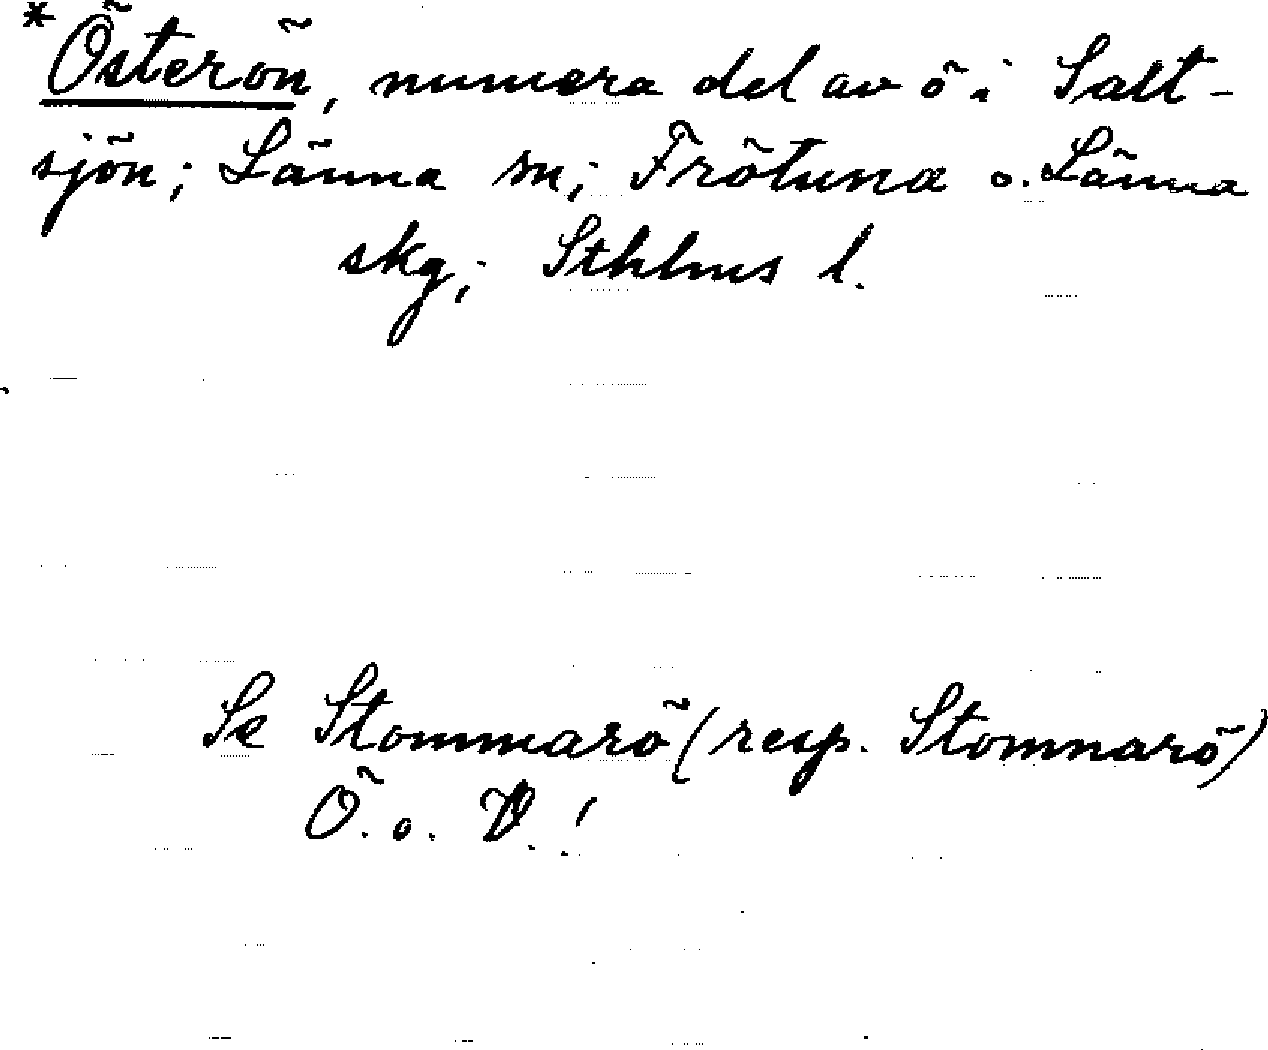 *Österön, numera del av ö i Salt-
sjön; Länna sn; Frötuna o. Länna
skg; Sthlms l.
Se Stommarö (resp. Stomnarö)
Ö. o. V.!